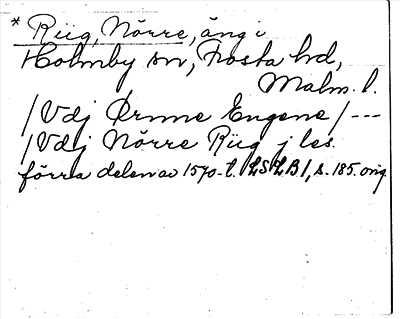 * Riig, Nörre, äng i
Holmby sn, Frosta hd,
Malm. l.
/Vdj Ørnne Engene/---
/Vdj Nörre Riig j les.
förra delen av 1570-t. LSLB1, s. 185. orig.